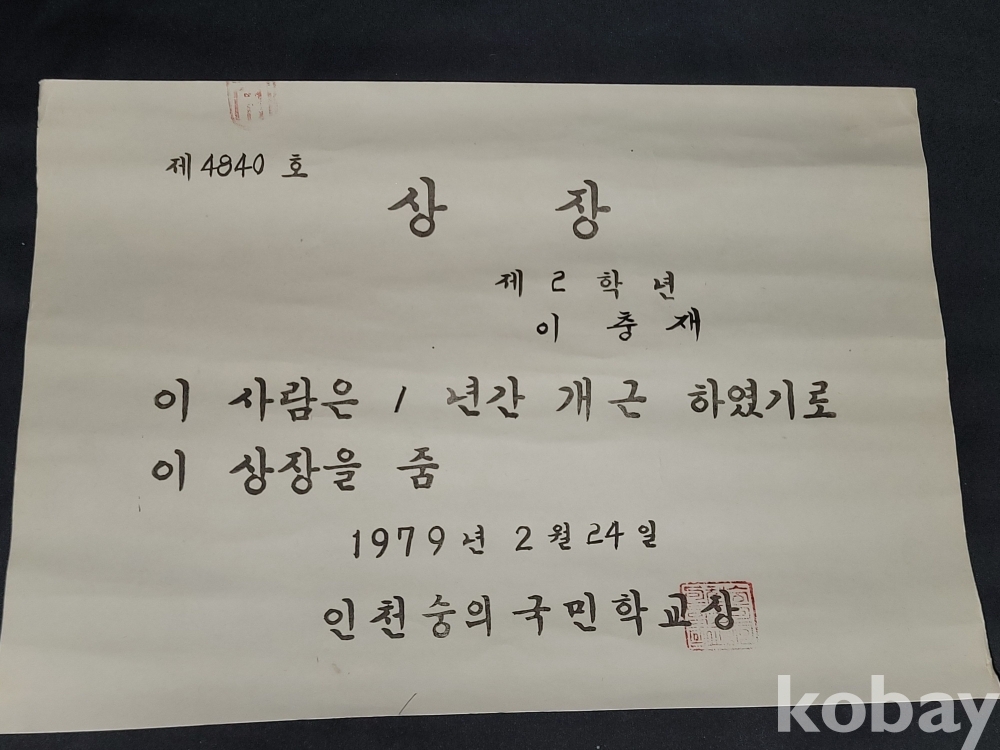 제 4840 호
상 장
제 2 학 년
이 충 재
이 사람은 1 년간 개근 하였기로
이 상장을 줌
1979 년 2 월 24 일
인천숭의 국민학교장
kobay